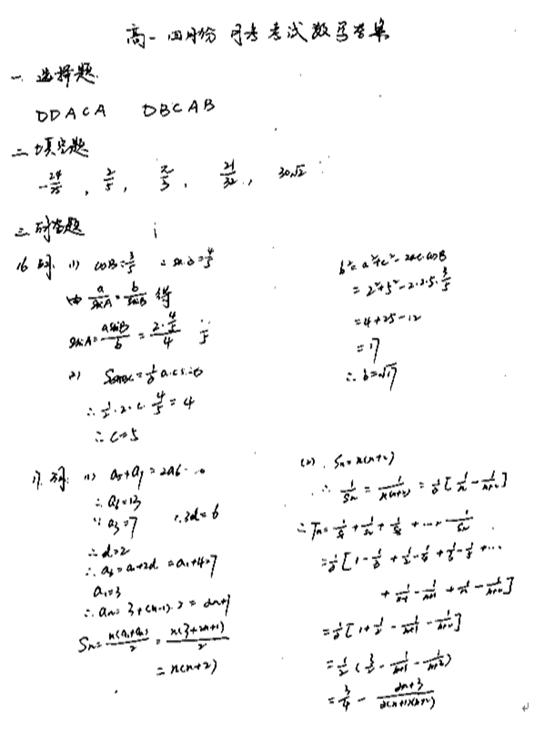 高一四月份月考考试数学答案
一. 选择题
DDACA DBCAB
二. 填空题
-24/25 , 2/5 , π/3 , 21/32 , 30√2
三. 解答题
16. 解: (1) cosB=3/5 ∴ sinB=4/5
由 a/sinA = b/sinB 得
sinA = asinB/b = (2·4/5)/4 = 2/5
(2) S△ABC = 1/2 a·c·sinB
∴ 1/2·2·c·4/5 = 4
∴ c=5
b²=a²+c²-2ac·cosB
= 2²+5²-2·2·5·3/5
=4+25-12
=17
∴ b=√17
17. 解: (1) a5+a7=2a6
∴ a6=13
∵ a3=7 ∴3d=6
∴ d=2
∴ a3=a1+2d=a1+4=7
a1=3
∴ an=3+(n-1)·2=2n+1
Sn= n(a1+an)/2 = n(3+2n+1)/2
= n(n+2)
(2). Sn=n(n+2)
∴ 1/Sn = 1/n(n+2) = 1/2[1/n - 1/(n+2)]
∴ Tn= 1/S1 + 1/S2 + 1/S3 + ... + 1/Sn
=1/2[1-1/3+1/2-1/4+1/3-1/5+...
+1/(n-1)-1/(n+1)+1/n-1/(n+2)]
=1/2[1+1/2-1/(n+1)-1/(n+2)]
=1/2(3/2-1/(n+1)-1/(n+2))
=3/4-(2n+3)/2(n+1)(n+2)